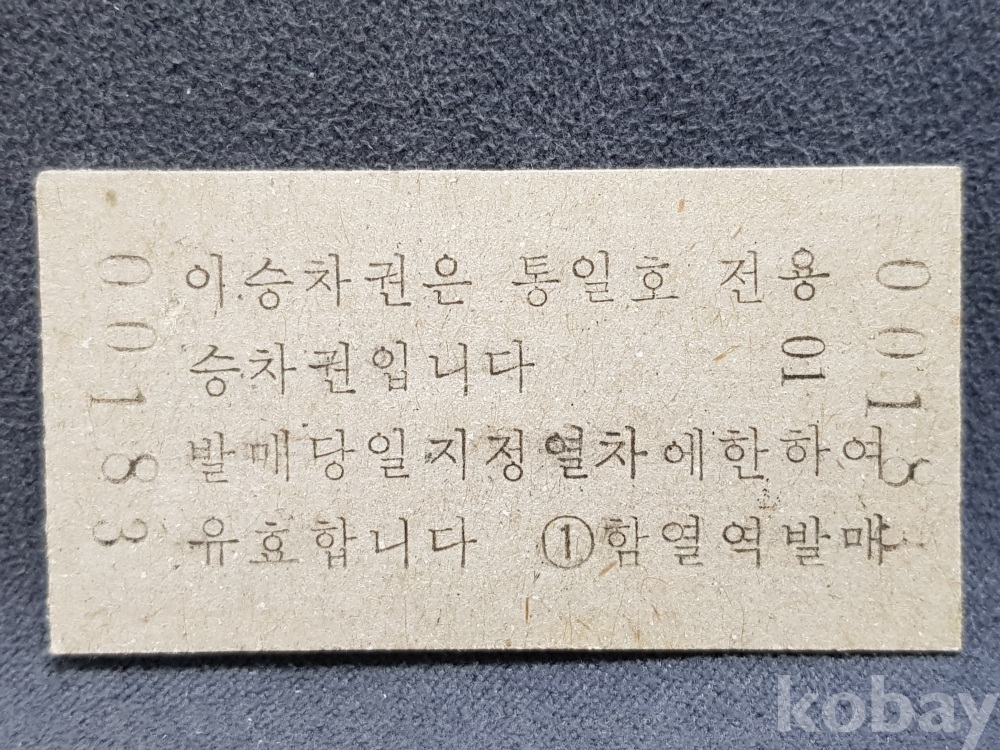 이승차권은 통일호 전용
승차권입니다
01
발매당일지정열차에한하여
유효합니다 ①함열역발매
00183
0018
kobay